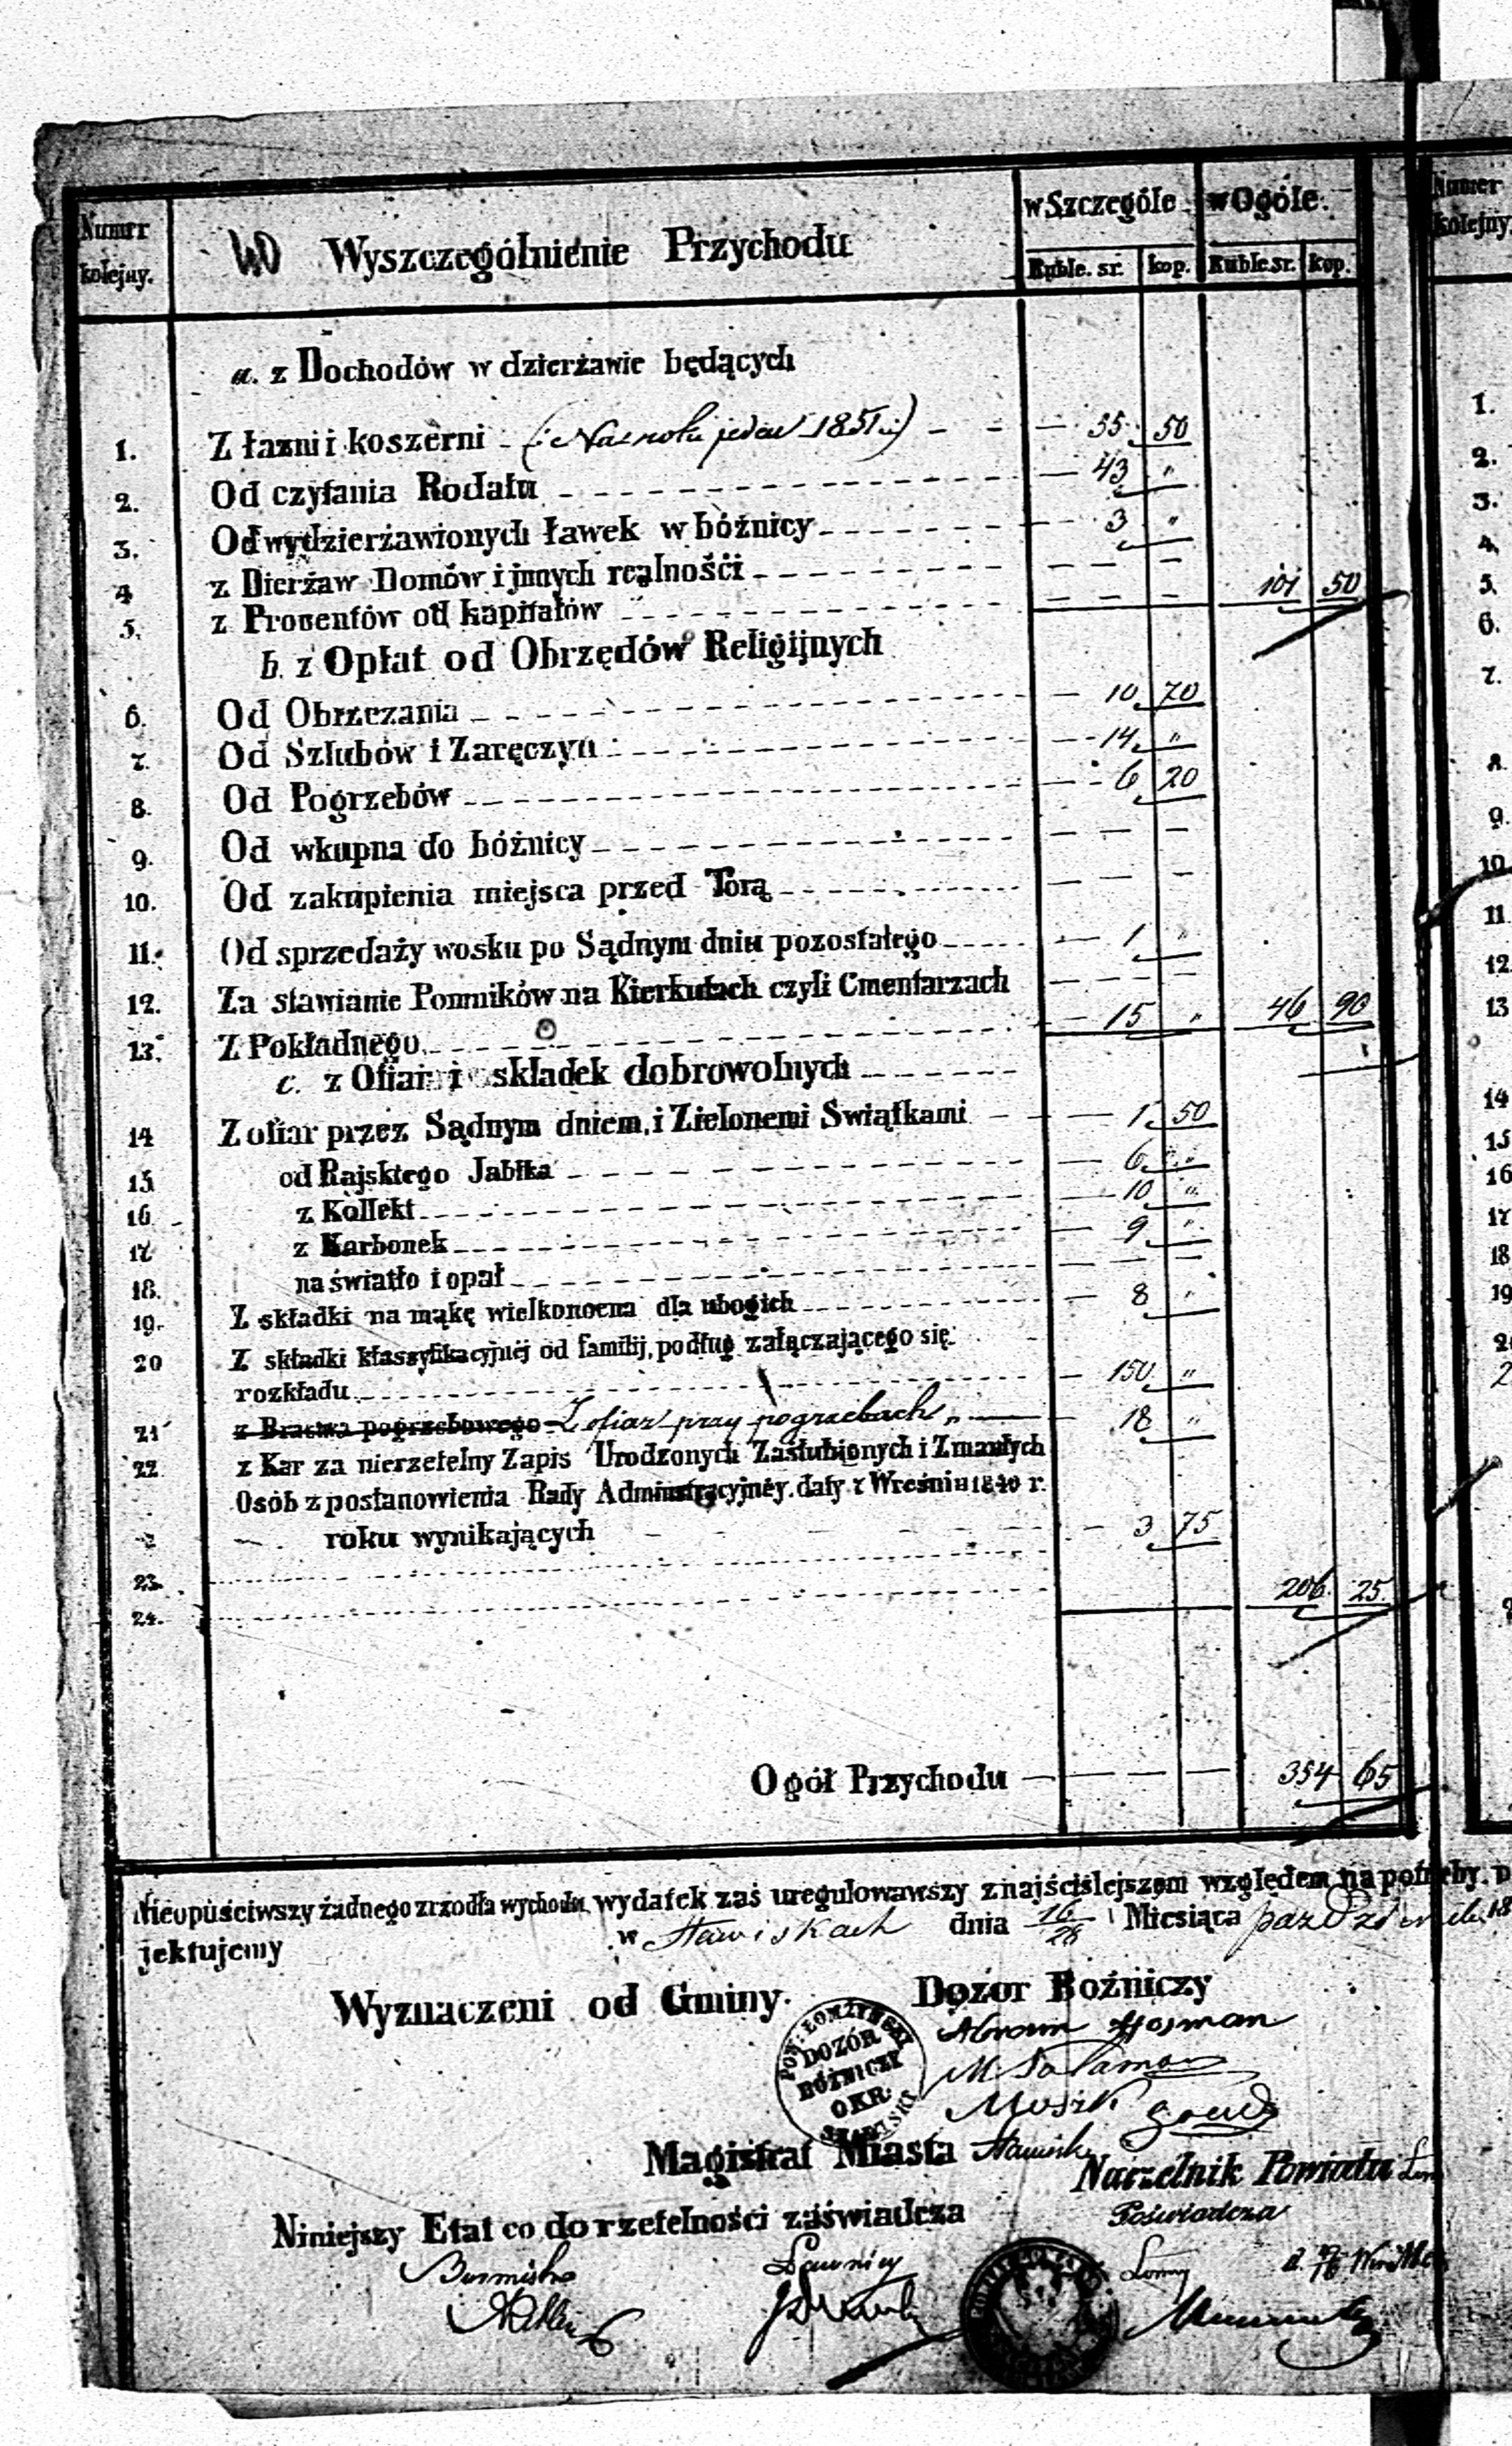 Numer kolejny.
40 Wyszczególnienie Przychodu
w Szczególe
w Ogóle.
Ruble. sr. kop. Ruble sr. kop.
a. z Dochodów w dzierżawie będących
1. Z łazni i koszerni (: Na rok jeden 1851 :) 55 50
2. Od czytania Rodału 43 "
3. Od wydzierżawionych ławek w bóźnicy 3 "
4 z Dierżaw Domów i jnnych realnośći — — —
5. z Prowentów od kapitałów — — — 101 50
b. z Opłat od Obrzędów Religijnych
6. Od Obrzezania 10 70
7. Od Szlubów i Zaręczyn 14 "
8. Od Pogrzebów 6 20
9. Od wkupna do bóżnicy — — —
10. Od zakupienia miejsca przed Torą — — —
11. Od sprzedaży wosku po Sądnym dniu pozostałego 1 "
12. Za stawianie Pomników na Kierkutach czyli Cmentarzach — — —
13. Z Pokładnego 15 " 46 90
c. z Ofiar i składek dobrowolnych
14 Z ofiar przez Sądnym dniem, i Zielonemi Swiątkami 1 50
15 od Rajskiego Jabłka 6 "
16 z Kollekt 10 "
17 z Karbonek 9 "
18. na światło i opał — — —
19. Z składki na mąkę wielkonocna dla ubogich 8 "
20 Z składki klassyfikacyjnéj od familij, podług załączającego się
rozkładu 150 "
21 z Bractwa pogrzebowego Z ofiar przy pogrzebach 18 "
22 z Kar za nierzetelny Zapis Urodzonych Zaślubionych i Zmarłych
Osób z postanowienia Rady Adminstracyjnéy. daty 7 Wreśnia 1840 r.
roku wynikających 3 75
23.
206 25
24.
Ogół Przychodu — — — 354 65
Nieopuściwszy żadnego zrzodła wychodu, wydatek zaś uregulowawszy z najściślejszem względem na potrzeby.
jektujemy
w Stawiskach dnia 16/28 Miesiąca października 18
Wyznaczeni od Gminy.
Dozor Boźniczy
POW: ŁOMŻYŃSKI
DOZÓR
BÓŻNICZY
OKR.
Abram
M
Moszk
Magistrat Miasta Stawisk
Naczelnik Powiatu
Poświadcza
Niniejszy Etat co do rzetelności záświadcza
Burmistrz
Ławnicy